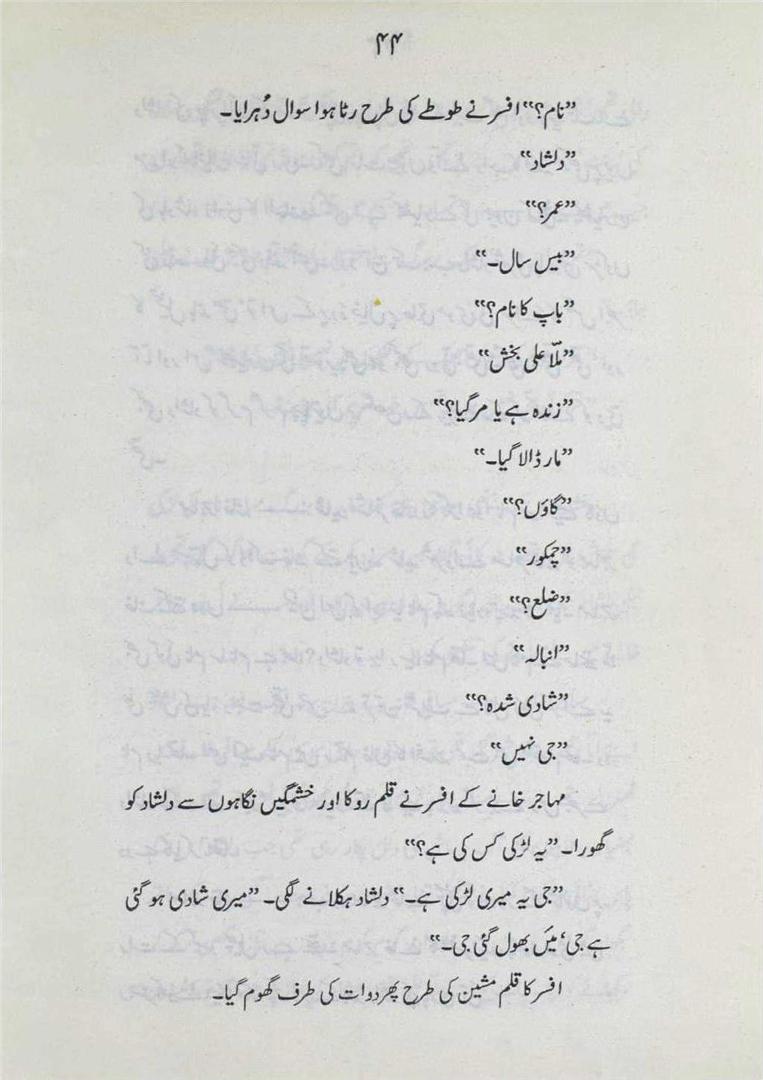 ۴۴
”نام؟“ افسر نے طوطے کی طرح رٹا ہوا سوال دُہرایا۔
”دلشاد“
”عمر؟“
”بیس سال۔“
”باپ کا نام؟“
”ملّا علی بخش“
”زندہ ہے یا مر گیا؟“
”مار ڈالا گیا۔“
”گاؤں؟“
”چمکور“
”ضلع؟“
”انبالہ“
”شادی شدہ؟“
”جی نہیں“
مہاجر خانے کے افسر نے قلم روکا اور خشمگیں نگاہوں سے دلشاد کو
گھورا۔ ”یہ لڑکی کس کی ہے؟“
”جی یہ میری لڑکی ہے۔“ دلشاد ہکلانے لگی۔ ”میری شادی ہو گئی
ہے جی، میَں بھول گئی جی۔“
افسر کا قلم مشین کی طرح پھر دوات کی طرف گھوم گیا۔